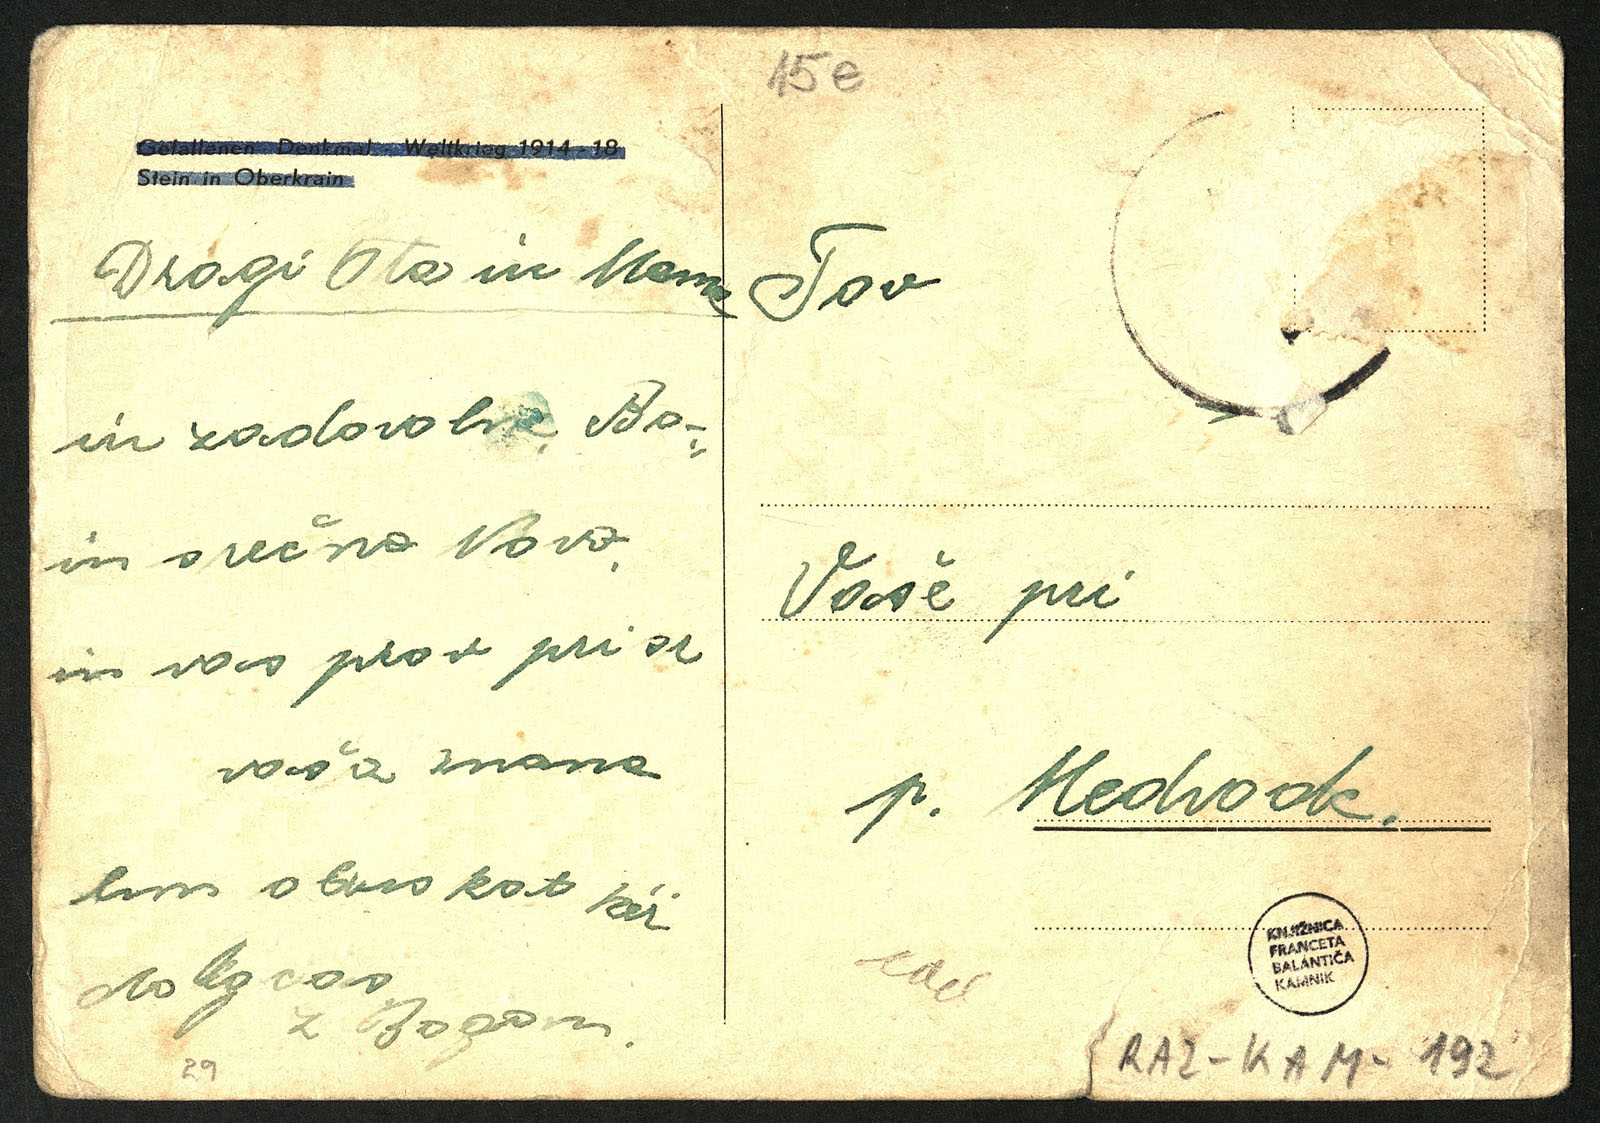 15e
Gefallenen Denkmal - Weltkrieg 1914-18
Stein in Oberkrain
Dragi Ata in Mama
in zadovolne. Bo-
in srečna Nova.
in vas prav prisr
vaša znana
kot
dolgčas
z Bogom.
29
Tov
Vaše pri
p. Medvode.
KNJIŽNICA
FRANCETA
BALANTIČA
KAMNIK
RAZ-KAM-192